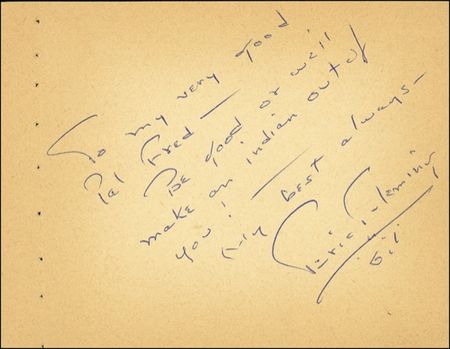 To my very good
Pal Fred —
Be good or we'll
make an indian out of
you! — 
My best always —
Eric Fleming
"Gil"